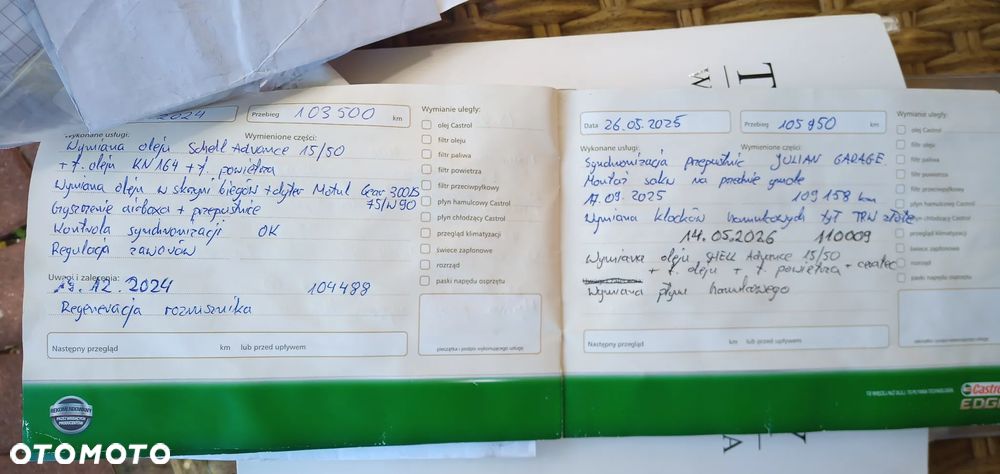 2024 Przebieg 103500 km
Wykonane usługi: Wymienione części:
Wymiana oleju Schell Advance 15/50
+ f. oleju KN164 + f. powietrza
Wymiana oleju w skrzyni biegów + dyfer Motul Gear 300LS
75/W90
Czyszczenie airboxa + przepustnice
Kontrola synchronizacji OK
Regulacja zaworów
Uwagi i zalecenia:
12.2024 104488
Regeneracja rozrusznika
Następny przegląd km lub przed upływem
Wymianie uległy:
olej Castrol
filtr oleju
filtr paliwa
filtr powietrza
filtr przeciwpyłkowy
płyn hamulcowy Castrol
płyn chłodzący Castrol
przegląd klimatyzacji
świece zapłonowe
rozrząd
paski napędu osprzętu
pieczątka i podpis wykonującego usługę
REKOMENDOWANY
PRZEZ WIODĄCYCH
PRODUCENTÓW
Data 26.05.2025 Przebieg 105950 km
Wykonane usługi: Wymienione części:
Synchronizacja przepustnic JULIAN GARAGE
Montaż na przednie
17.09.2025 109158 km
Wymiana klocków hamulcowych tył TRW
14.05.2026 110009
Wymiana oleju SHELL Advance 15/50
+ f. oleju + f. powietrza +
Wymiana płynu hamulcowego
Następny przegląd km lub przed upływem
Wymianie uległy:
olej Castrol
filtr oleju
filtr paliwa
filtr powietrza
filtr przeciwpyłkowy
płyn hamulcowy Castrol
chłodzący Castrol
przegląd klimatyzacji
świece zapłonowe
rozrząd
paski napędu osprzętu
TO WIĘCEJ NIŻ OLEJ. TO PŁYNNA TECHNOLOGIA.
Castrol
EDGE
T
W
A
OTOMOTO